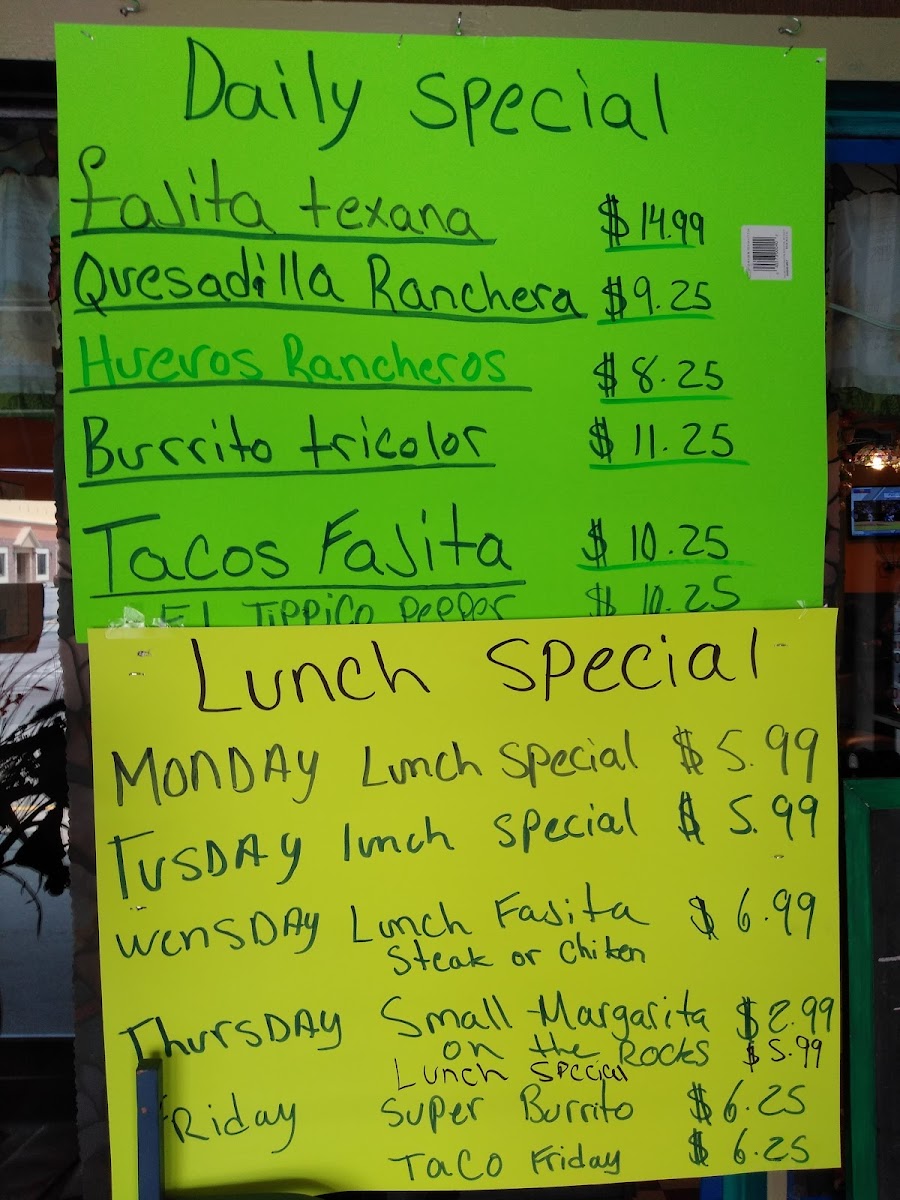 Daily special
fajita texana $ 14.99
Quesadilla Ranchera $ 9.25
Huevos Rancheros $ 8.25
Burrito tricolor $ 11.25
Tacos Fajita $ 10.25
El Tippico Pepper $ 10.25
Lunch Special
MONDAY Lunch Special $ 5.99
TUSDAY lunch special $ 5.99
WENSDAY Lunch Fajita $ 6.99
Steak or Chiken
THURSDAY Small Margarita $ 2.99
on the Rocks $ 5.99
Lunch Special
FRiday Super Burrito $ 6.25
TACO Friday $ 6.25